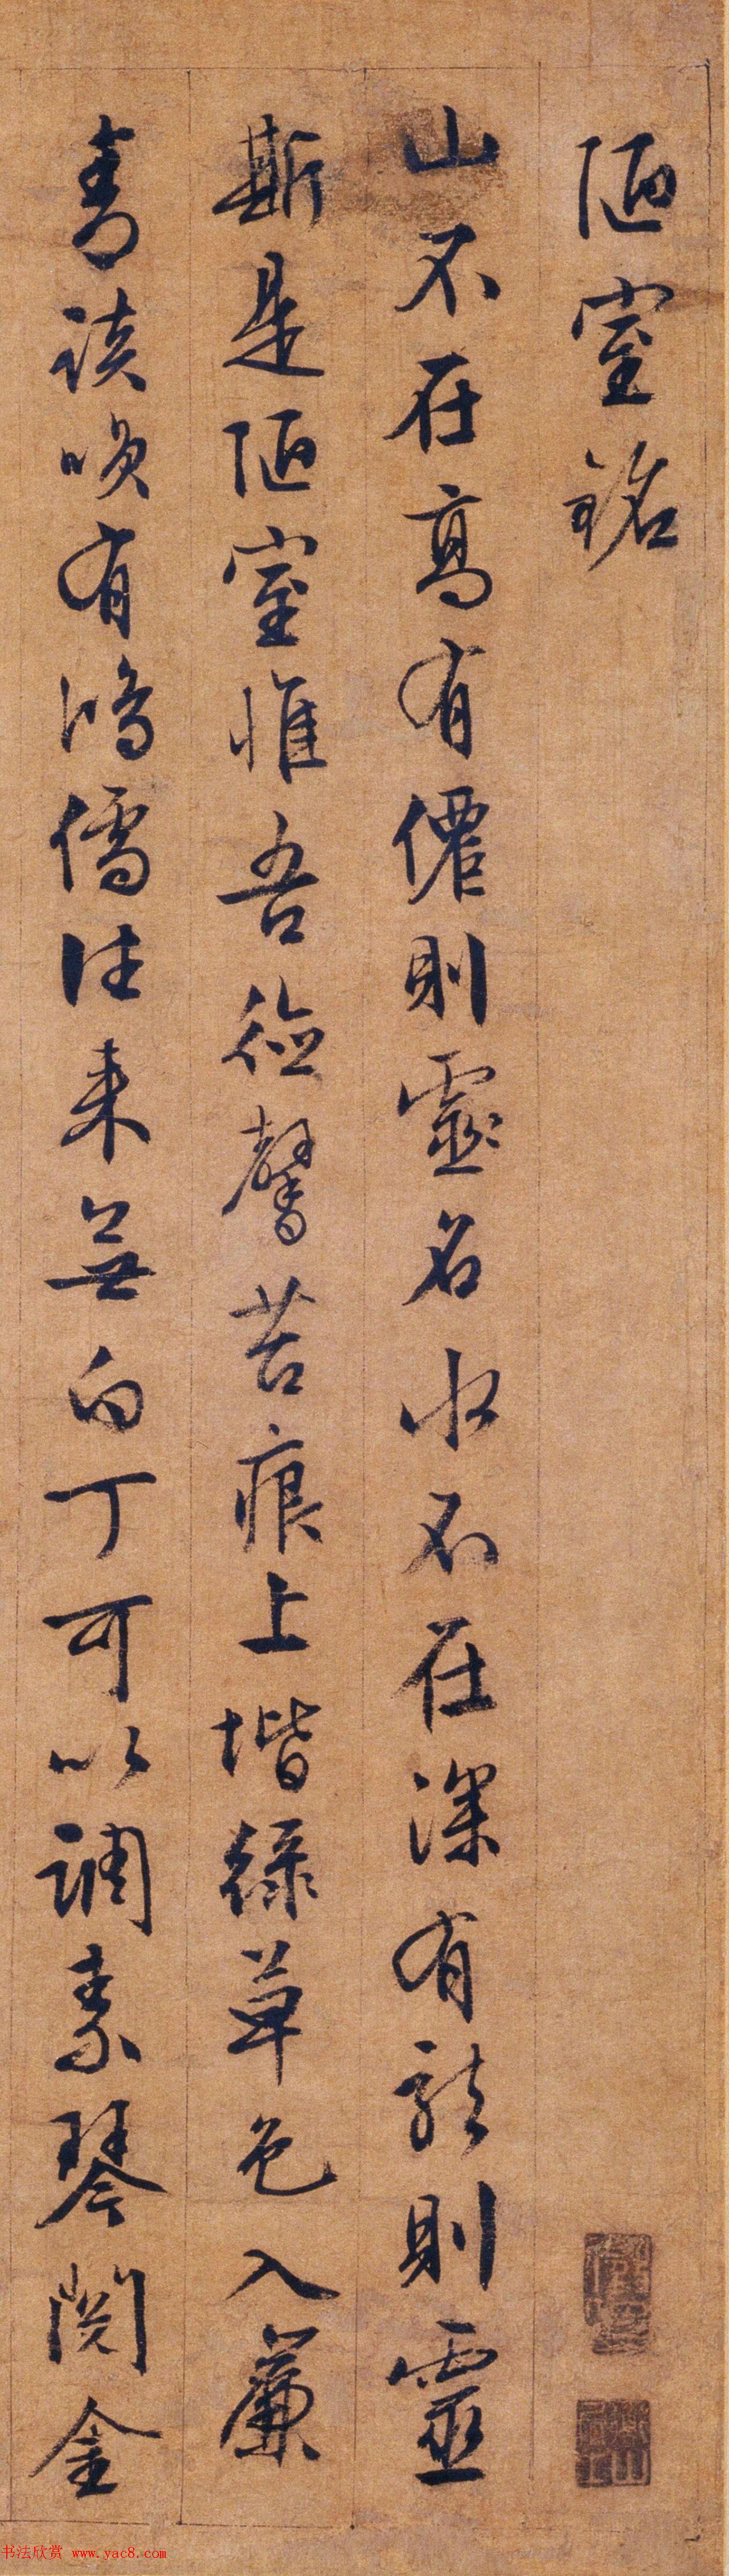 陋室銘
山不在高有僊則靈名水不在深有龍則靈
斯是陋室惟吾德馨苔痕上堦綠草色入簾
青談咲有鴻儒往来無白丁可以調素琴閱金
书法欣赏 www.yac8.com